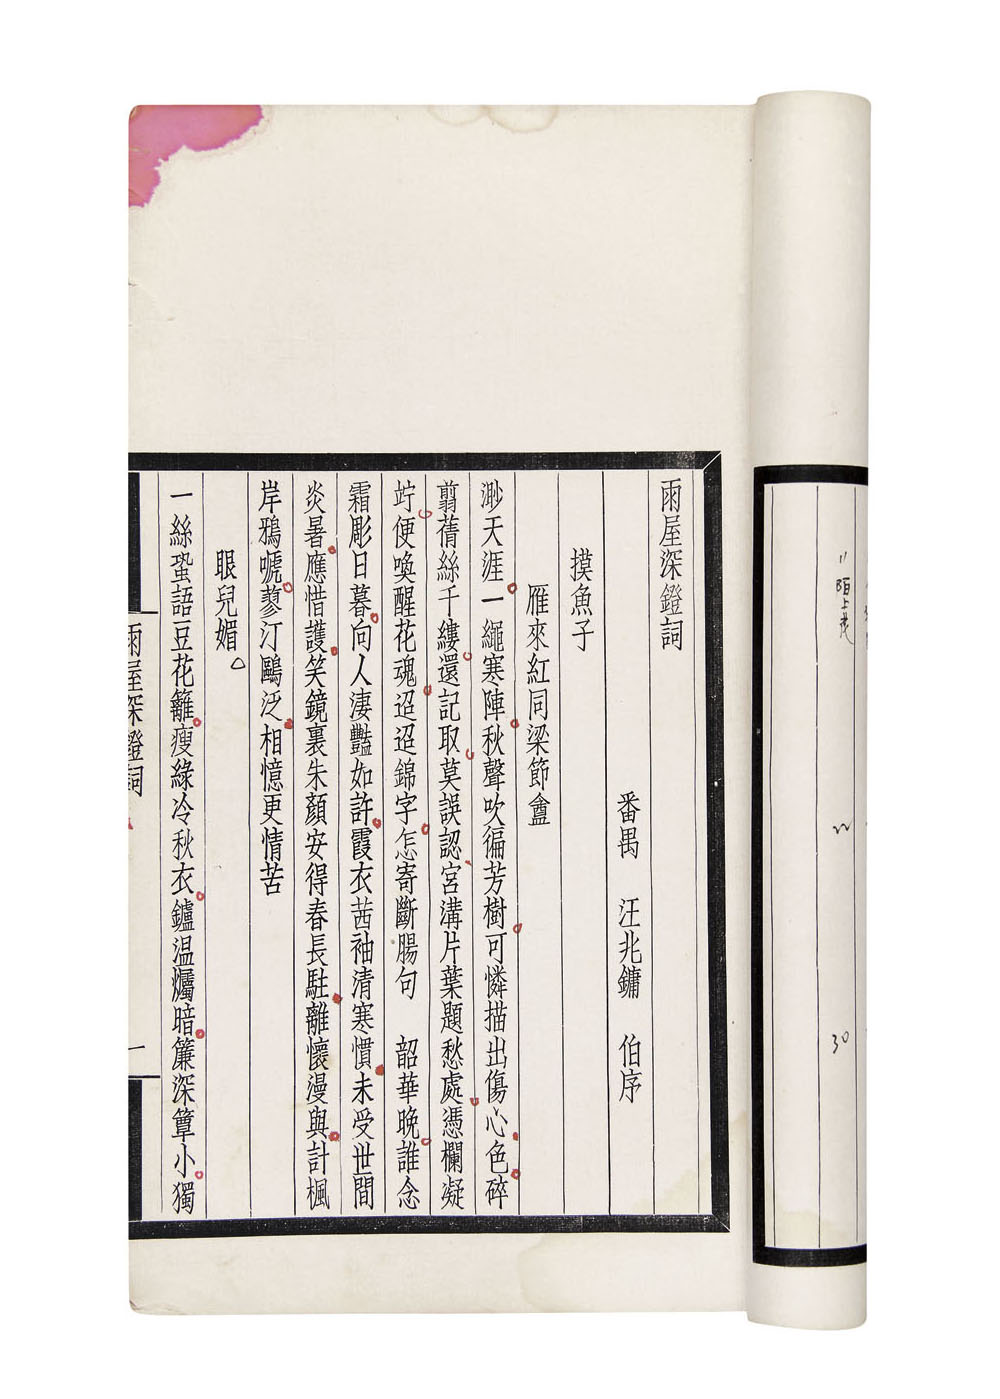 雨屋深鐙詞
番禺　汪兆鏞　伯序
摸魚子
雁來紅同梁節盦
渺天涯一繩寒陣秋聲吹徧芳樹可憐描出傷心色碎
翦蒨絲千縷還記取莫誤認宮溝片葉題愁處憑欄凝
竚便喚醒花魂迢迢錦字怎寄斷腸句　韶華晚誰念
霜彫日暮向人淒豔如許霞衣茜袖清寒慣未受世間
炎暑應惜護笑鏡裏朱顏安得春長駐離懷漫與計楓
岸鴉嗁蓼汀鷗泛相憶更情苦
眼兒媚
一絲蛩語豆花籬瘦綠冷秋衣鑪温爥暗簾深簟小獨
雨屋深鐙詞
一
30